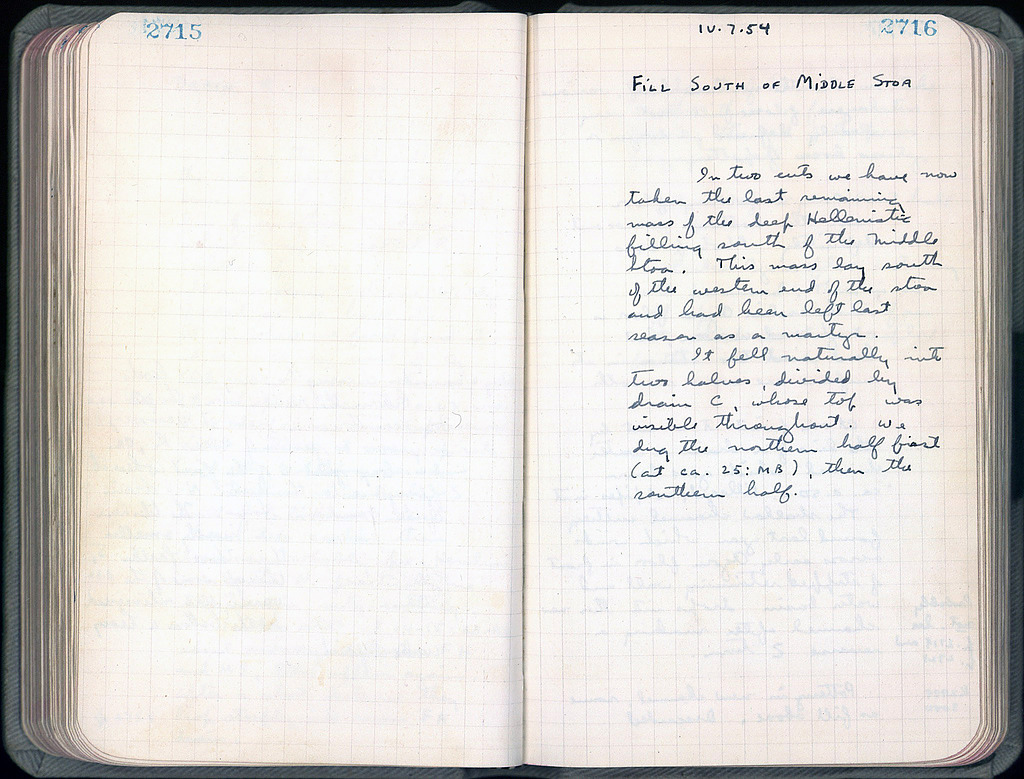 2715
IV.7.54
2716
FILL SOUTH OF MIDDLE STOA
In two cuts we have now
taken the last remaining
mass of the deep Hellenistic
filling south of the Middle
Stoa. This mass lay south
of the western end of the stoa
and had been left last
season as a martyr.
It fell naturally into
two halves, divided by
drain C, whose top was
visible throughout. We
dug the northern half first
(at ca. 25:MB), then the
southern half.